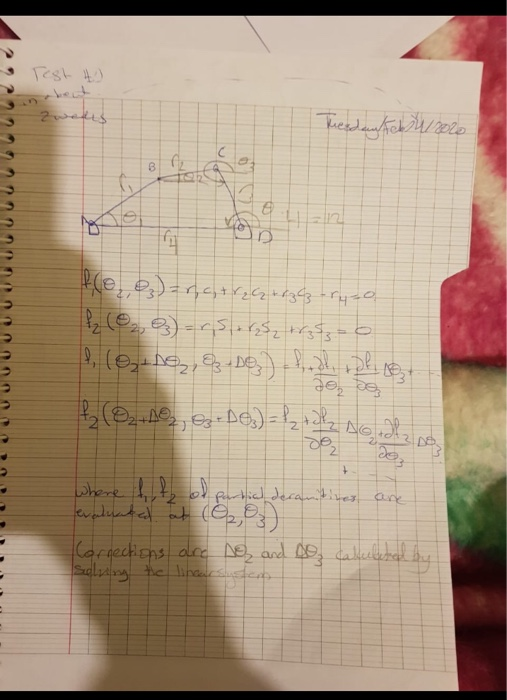 Test #1
in about
2 weeks
Tuesday/Feb/
/2020
C
B r2 θ2 θ3
r1
A θ1 θ
r4 D
f1(θ2, θ3) = r1c1 + r2c2 + r3c3 - r4 = 0
f2(θ2, θ3) = r1s1 + r2s2 + r3s3 = 0
f1(θ2+Δθ2, θ3+Δθ3) = f1 + ∂f1/∂θ2 + ∂f1/∂θ3 Δθ3 + ...
f2(θ2+Δθ2, θ3+Δθ3) = f2 + ∂f2/∂θ2 Δθ2 + ∂f2/∂θ3 Δθ3
+ ...
where f1, f2 of partial deravitives are
evaluated at (θ2, θ3)
Corrections are Δθ2 and Δθ3 calculated by
solving the linear system